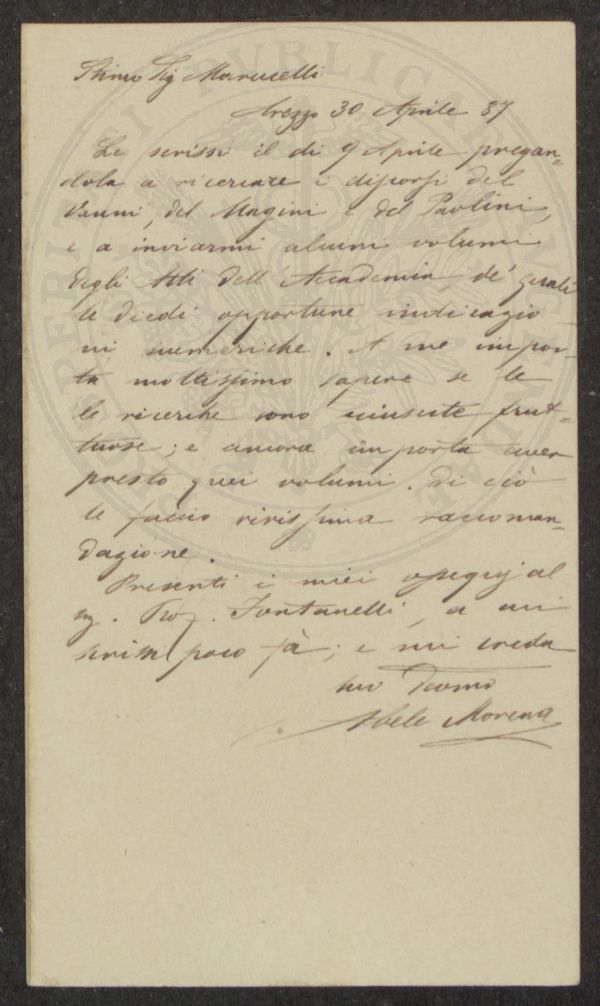 Stimo Sig Marucelli
Arezzo 30 Aprile 87
Le scrissi il dì 9 Aprile pregan-
dola a ricercare i discorsi del
Vanni, del Magini e del Paolini,
e a inviarmi alcuni volumi
degli Atti dell'Accademia, de' quali
le diedi opportune indicazio
ni numeriche. A me impor-
ta moltissimo sapere se le
le ricerche sono riuscite frut-
tuose; e ancora importa aver
presto quei volumi. Di ciò
le faccio vivissima raccoman-
dazione.
Presenti i miei ossequj al
Sig. Prof. Fontanelli, a cui
scrissi poco fà; e mi creda
suo Devmo
Abele Morena